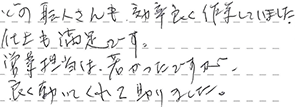 どの職人さんも、効率良く作業していました
仕上も満足です。
営業担当は、若かったですが、
良く動いてくれて助りました。